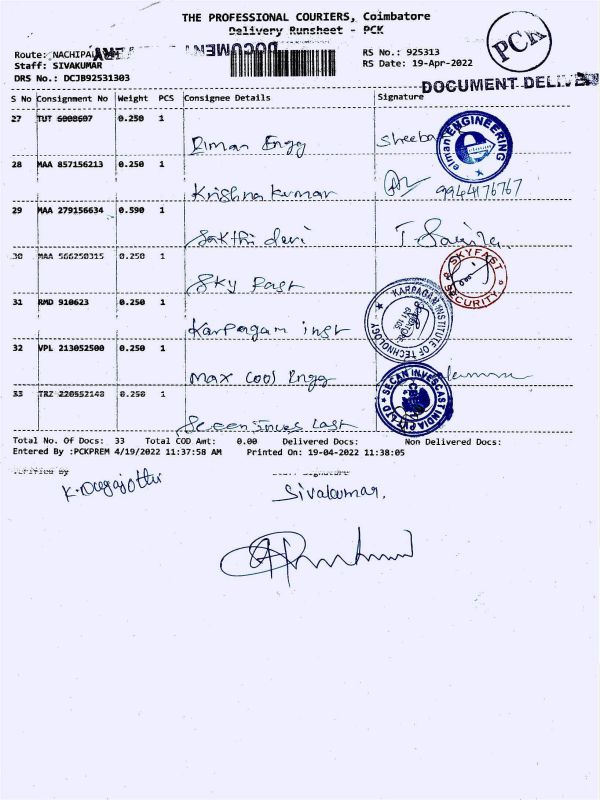 THE PROFESSIONAL COURIERS, Coimbatore
Delivery Runsheet - PCK
PCK
Route: NACHIPAL
DOCUMENT
RS No.: 925313
Staff: SIVAKUMAR
RS Date: 19-Apr-2022
DRS No.: DCJB92531303
DOCUMENT DELIVE
S No Consignment No Weight PCS Consignee Details Signature
27 TUT 6008607 0.250 1
Elman Engg Sheeba
elman ENGINEERING
28 MAA 857156213 0.250 1
Krishna Kumar 9944176767
29 MAA 279156634 0.590 1
Sakthi devi
30 MAA 566250315 0.250 1
Sky Fast
SKYFAST SECURITY
31 RMD 910623 0.250 1
Karpagam inst
KARPAGAM INSTITUTE OF TECHNOLOGY
32 VPL 213052500 0.250 1
Max Cool Engg
33 TRZ 220552148 0.250 1
SECAN INVESCAST INDIA PVT LTD
Total No. Of Docs: 33 Total COD Amt: 0.00 Delivered Docs: Non Delivered Docs:
Entered By :PCKPREM 4/19/2022 11:37:58 AM Printed On: 19-04-2022 11:38:05
Verified By Staff Signature
Sivakumar.